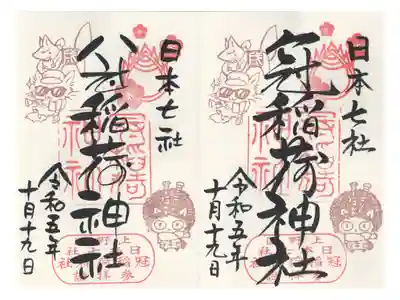 日本七社
冠稲荷神社
令和五年
十月十九日
日本七社
冠稲荷神社
令和五年
十月十九日